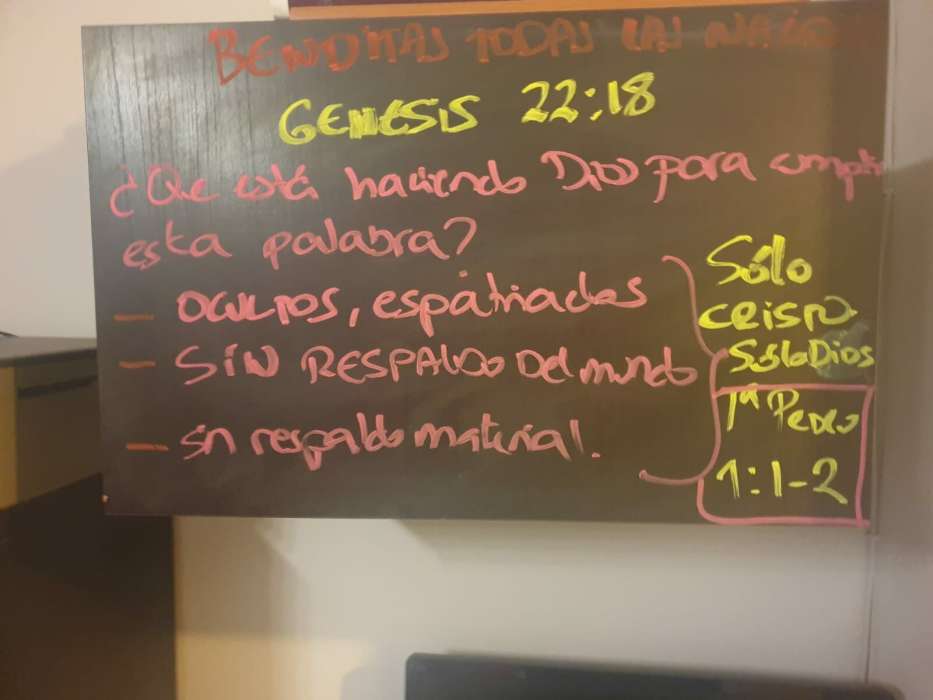 BENDITAS TODAS LAS NACIO
GENESIS 22:18
¿Que está haciendo Dios para cumplir
esta palabra?
— OCULTOS, espatriados
— SIN RESPALDO Del mundo
— sin respaldo material.
Sólo
CRISTO
SóloDios
1ª Pedro
1:1-2